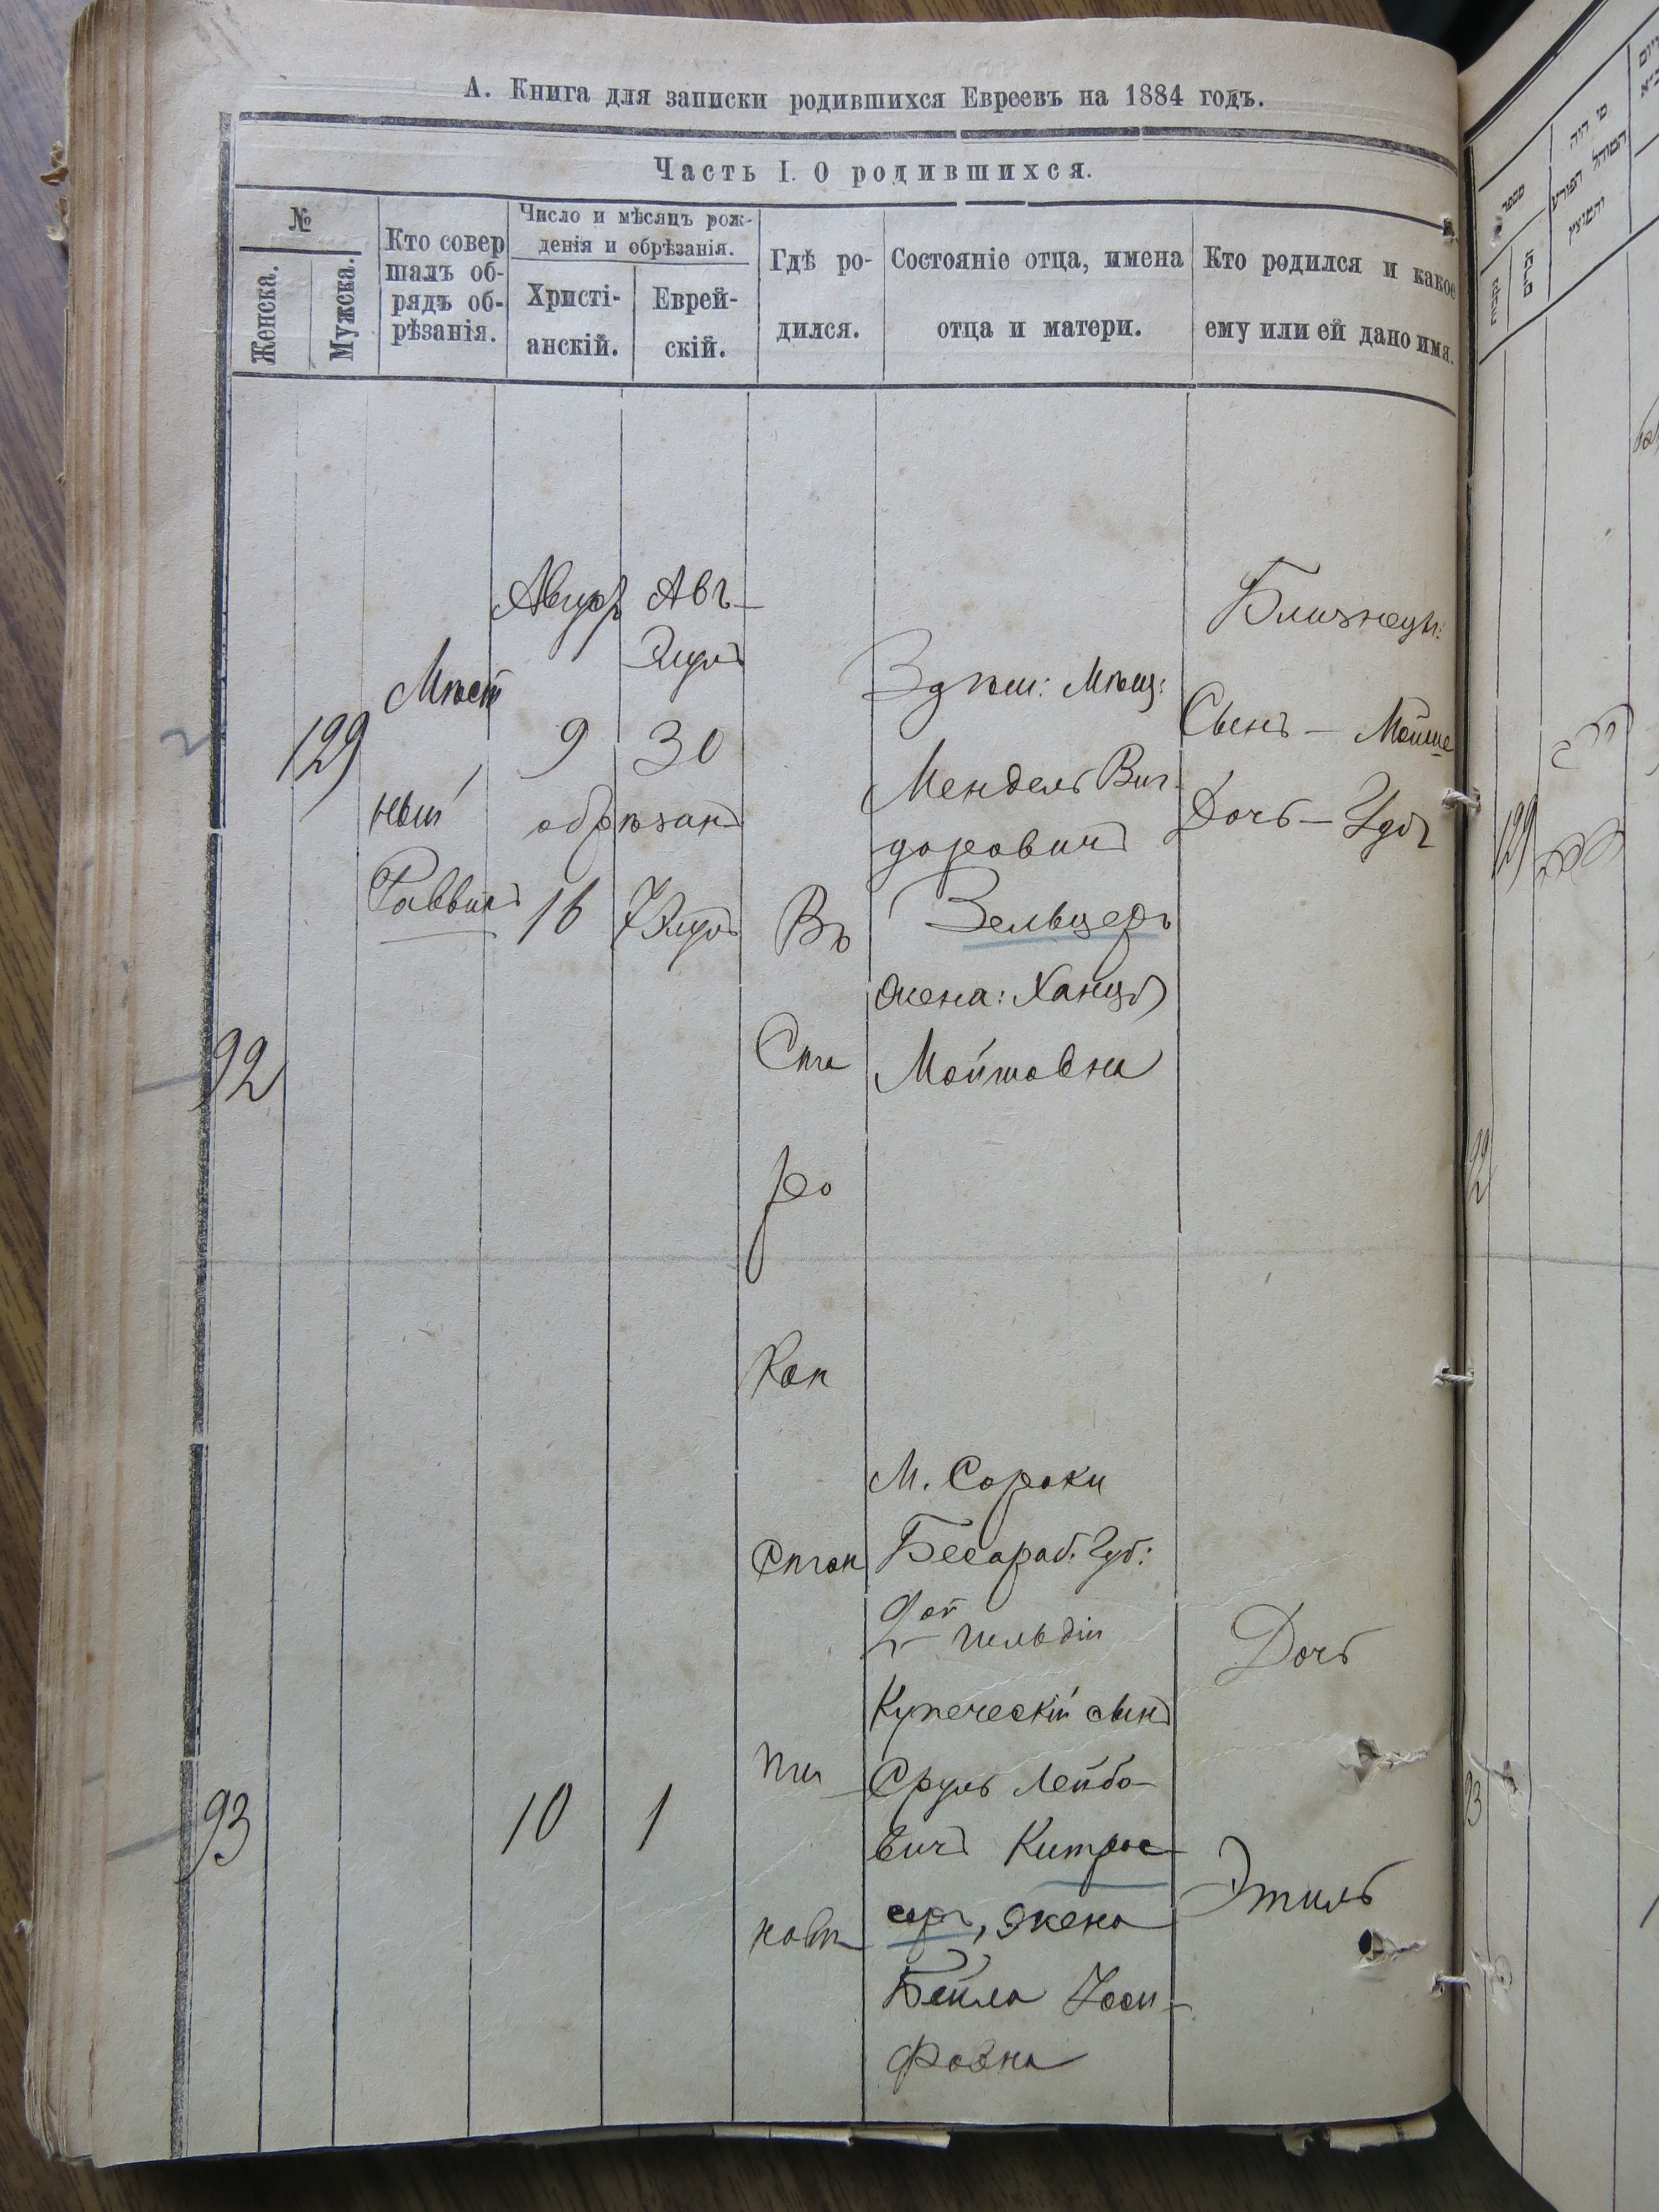 А. Книга для записки родившихся Евреевъ на 1884 годъ.
Часть I. О родившихся.
№
Женска.
Мужска.
Кто совер
шалъ об-
рядъ об-
рѣзанія.
Число и мѣсяцъ рож-
денія и обрѣзанія.
Христі-
анскій.
Еврей-
скій.
Гдѣ ро-
дился.
Состояніе отца, имена
отца и матери.
Кто родился и какое
ему или ей дано имя.
129
92
Мѣст
ный
Раввинъ
Авг
9
обрѣзанъ
16
Авъ-
Элулъ
30
7 Элулъ
Въ
Ста
ро
Кон
стан
ти
новѣ
Здѣш: Мѣщ:
Мендель Виг
доровичъ
Зельцеръ
жена: Ханця
Мойшовна
Близнецы:
Сынъ — Мойше
Дочь —
93
10
1
М. Сороки
Бесараб. Губ:
2ой гильдіи
Купеческій сынъ
Сруль Лейбо-
вичъ Китрос-
серъ, жена
Бейла Іоси-
фовна
Дочь
Этиль
מספר
נקבות
זכרים
מי היה
המוהל הפורע
והמוצץ
129
92
93